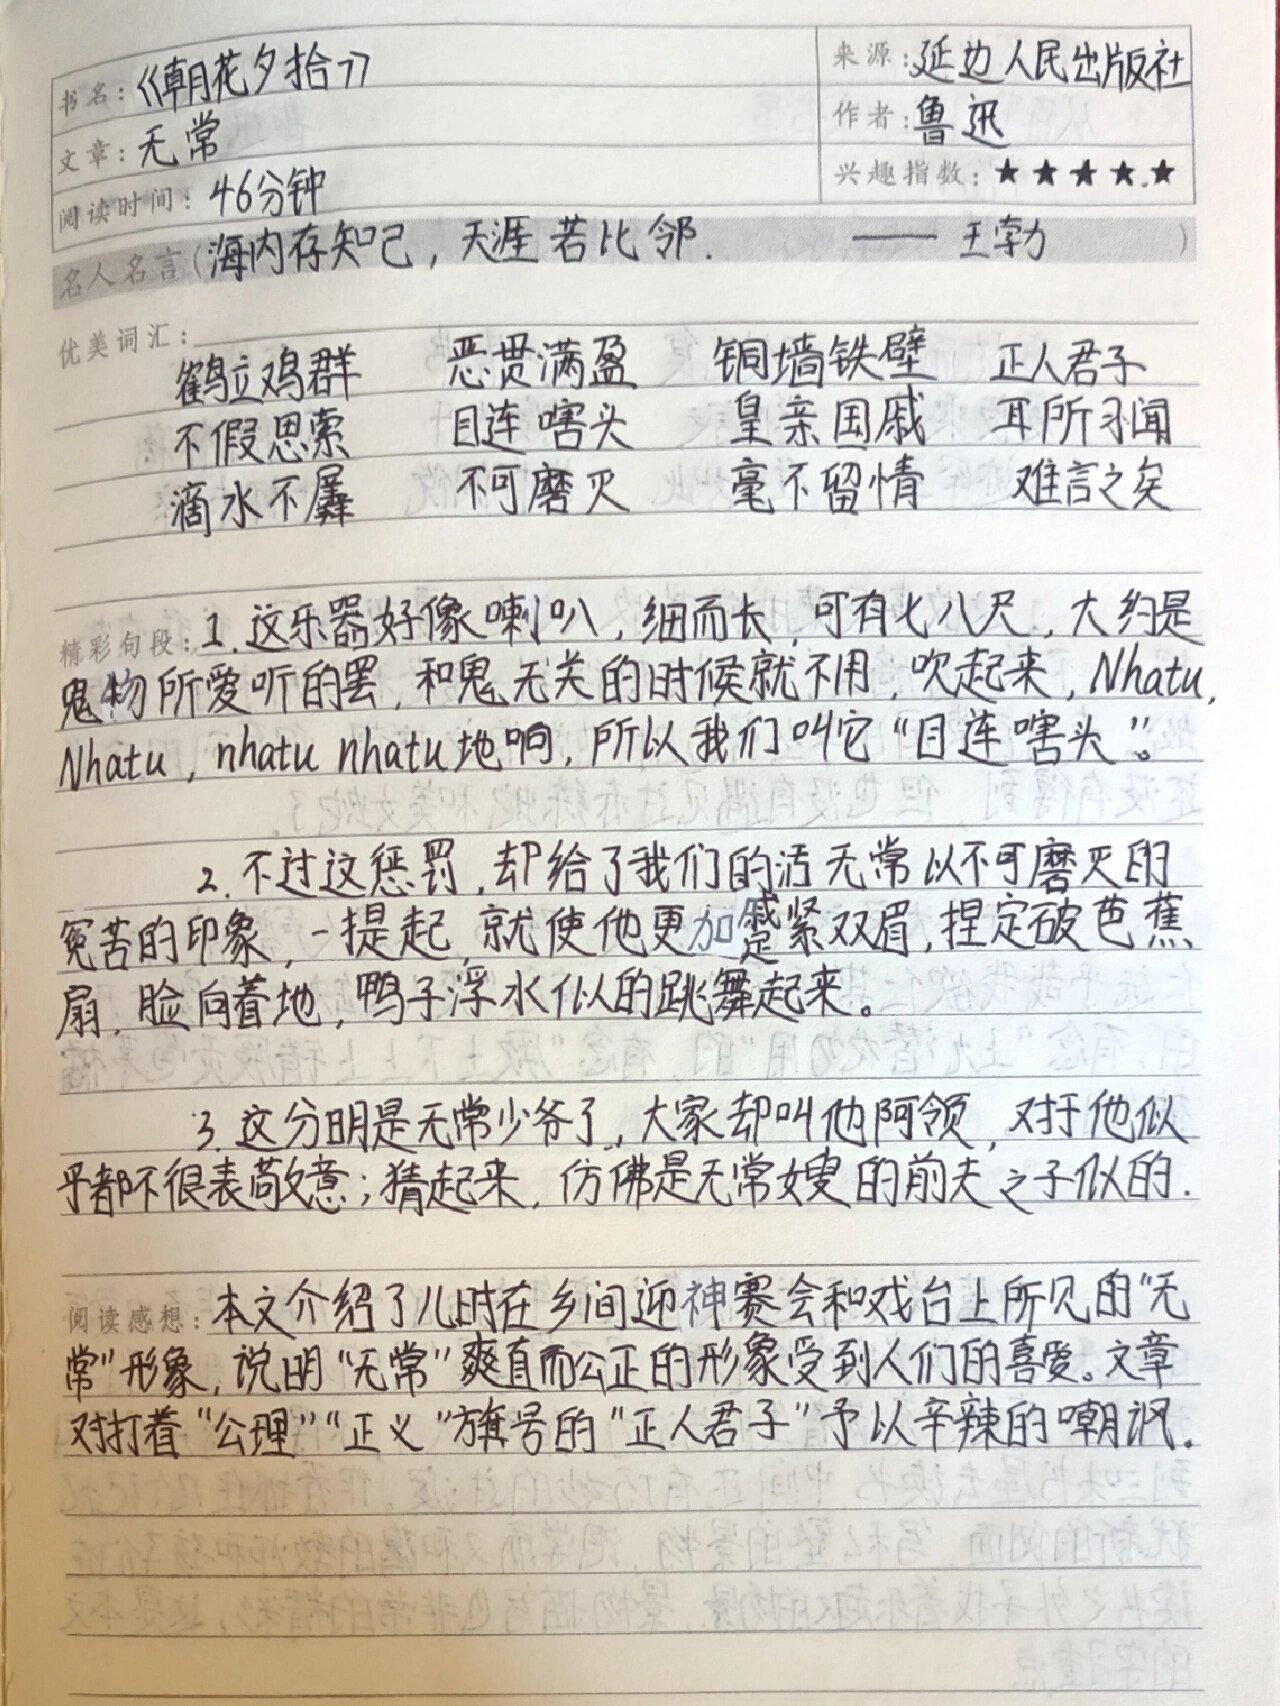 书名：《朝花夕拾》
来源：延边人民出版社
文章：无常
作者：鲁迅
阅读时间：46分钟
兴趣指数：★★★★★
名人名言（海内存知己，天涯若比邻. —— 王勃）
优美词汇：
鹤立鸡群 恶贯满盈 铜墙铁壁 正人君子
不假思索 目连嗐头 皇亲国戚 耳所习闻
滴水不羼 不可磨灭 毫不留情 难言之矣
精彩句段：1.这乐器好像喇叭，细而长，可有七八尺，大约是
鬼物所爱听的罢，和鬼无关的时候就不用，吹起来，Nhatu,
Nhatu，nhatu nhatu地响，所以我们叫它“目连嗐头”。
2.不过这惩罚，却给了我们的活无常以不可磨灭的
冤苦的印象，一提起，就使他更加蹙紧双眉，捏定破芭蕉
扇，脸向着地，鸭子浮水似的跳舞起来。
3.这分明是无常少爷了，大家却叫他阿领，对于他似
乎都不很表敬意；猜起来，仿佛是无常嫂的前夫之子似的.
阅读感想：本文介绍了儿时在乡间迎神赛会和戏台上所见的“无
常”形象，说明“无常”爽直而公正的形象受到人们的喜爱。文章
对打着“公理”“正义”旗号的“正人君子”予以辛辣的嘲讽.